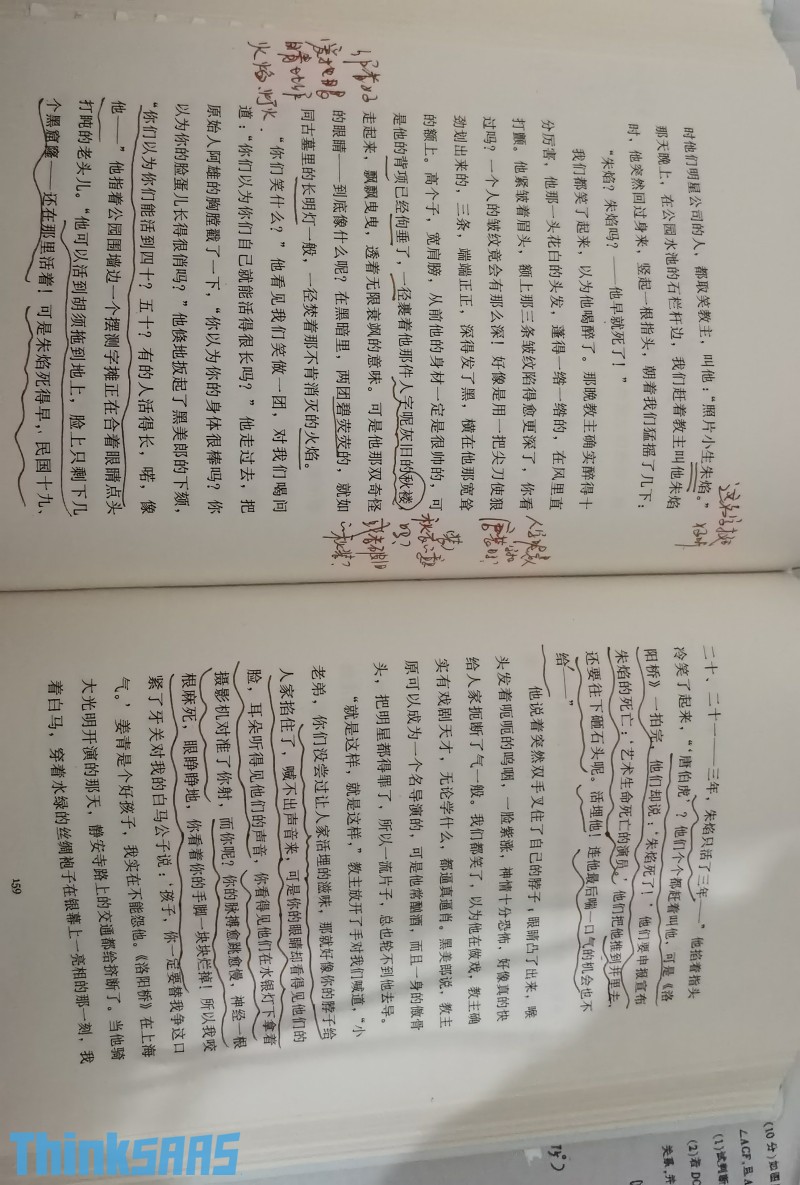 时他们明星公司的人，都取笑教主，叫他：“照片小生朱焰。”
那天晚上，在公园水池的石栏杆边，我们赶着教主叫他朱焰
时，他突然回过身来，竖起一根指头，朝着我们猛摇了几下：
“朱焰？朱焰吗？——他早就死了！”
我们都笑了起来，以为他喝醉了。那晚教主确实醉得十
分厉害，他那一头花白的头发，蓬得一绺一绺的，在风里直
打颤。他紧皱着眉头，额上那三条皱纹陷得愈更深了，你看
过吗？一个人的皱纹竟会有那么深！好像是用一把尖刀使狠
劲划出来的，三条，端端正正，深得发了黑，横在他那宽耸
的额上。高个子，宽肩膀，从前他的身材一定是很帅的，可
是他的背项已经佝垂了，一径裹着他那件人字呢灰旧的秋褛，
走起来，飘飘曳曳，透着无限衰飒的意味。可是他那双奇怪
的眼睛——到底像什么呢？在黑暗里，两团碧荧荧的，就如
同古墓里的长明灯一般，一径焚着那不肯消灭的火焰。
“你们笑什么？”他看见我们笑做一团，对我们喝问
道：“你们以为你们自己就能活得很长吗？”他走过去，把
原始人阿雄的胸膛戳了一下，“你以为你的身体很棒吗？你
以为你的脸蛋儿长得很俏吗？”他倏地扳起了黑美郎的下颏，
“你们以为你们能活到四十？五十？有的人活得长，喏，像
他——”他指着公园围墙边一个摆测字摊正在合着眼睛点头
打盹的老头儿。“他可以活到胡须拖到地上，脸上只剩下几
个黑窟窿——还在那里活着！可是朱焰死得早，民国十九、
二十、二十一——三年，朱焰只活了三年——”他掐着指头
冷笑了起来，“‘唐伯虎’？他们个个都赶着叫他，可是《洛
阳桥》一拍完，他们却说：‘朱焰死了！’他们要申报宣布
朱焰的死亡：‘艺术生命死亡的演员。’他们把他推到井里去，
还要往下砸石头呢。活埋他！连他最后喘一口气的机会也不
给——”
他说着突然双手叉住了自己的脖子，眼睛凸了出来，喉
头发着呃呃的呜咽，一脸紫涨，神情十分恐怖，好像真的快
给人家扼断了气一般。我们都笑了，以为他在做戏，教主确
实有戏剧天才，无论学什么，都逼真逼肖。黑美郎说，教主
原可以成为一个名导演的，可是他常酗酒，而且一身的傲骨
头，把明星都得罪了，所以一流片子，总也轮不到他去导。
“就是这样，就是这样，”教主放开了手对我们喊道，“小
老弟，你们没尝过让人家活埋的滋味，那就好像你的脖子给
人家掐住了，喊不出声音来，可是你的眼睛却看得见他们的
脸，耳朵听得见他们的声音，你看得见他们在水银灯下拿着
摄影机对准了你射，而你呢？你的脉搏愈跳愈慢，神经一根
根麻死，眼睁睁地，你看着你的手脚一块块烂掉！所以我咬
紧了牙关对我的白马公子说：‘孩子，你一定要替我争这口
气。’姜青是个好孩子，我实在不能怨他。《洛阳桥》在上海
大光明开演的那天，静安寺路上的交通都给挤断了。当他骑
着白马，穿着水绿的丝绸袍子在银幕上一亮相的那一刻，我
159
(10分) 如图
∠ACF,且A
(1)试判断
(2)若DC
关系,并
ThinkSAAS